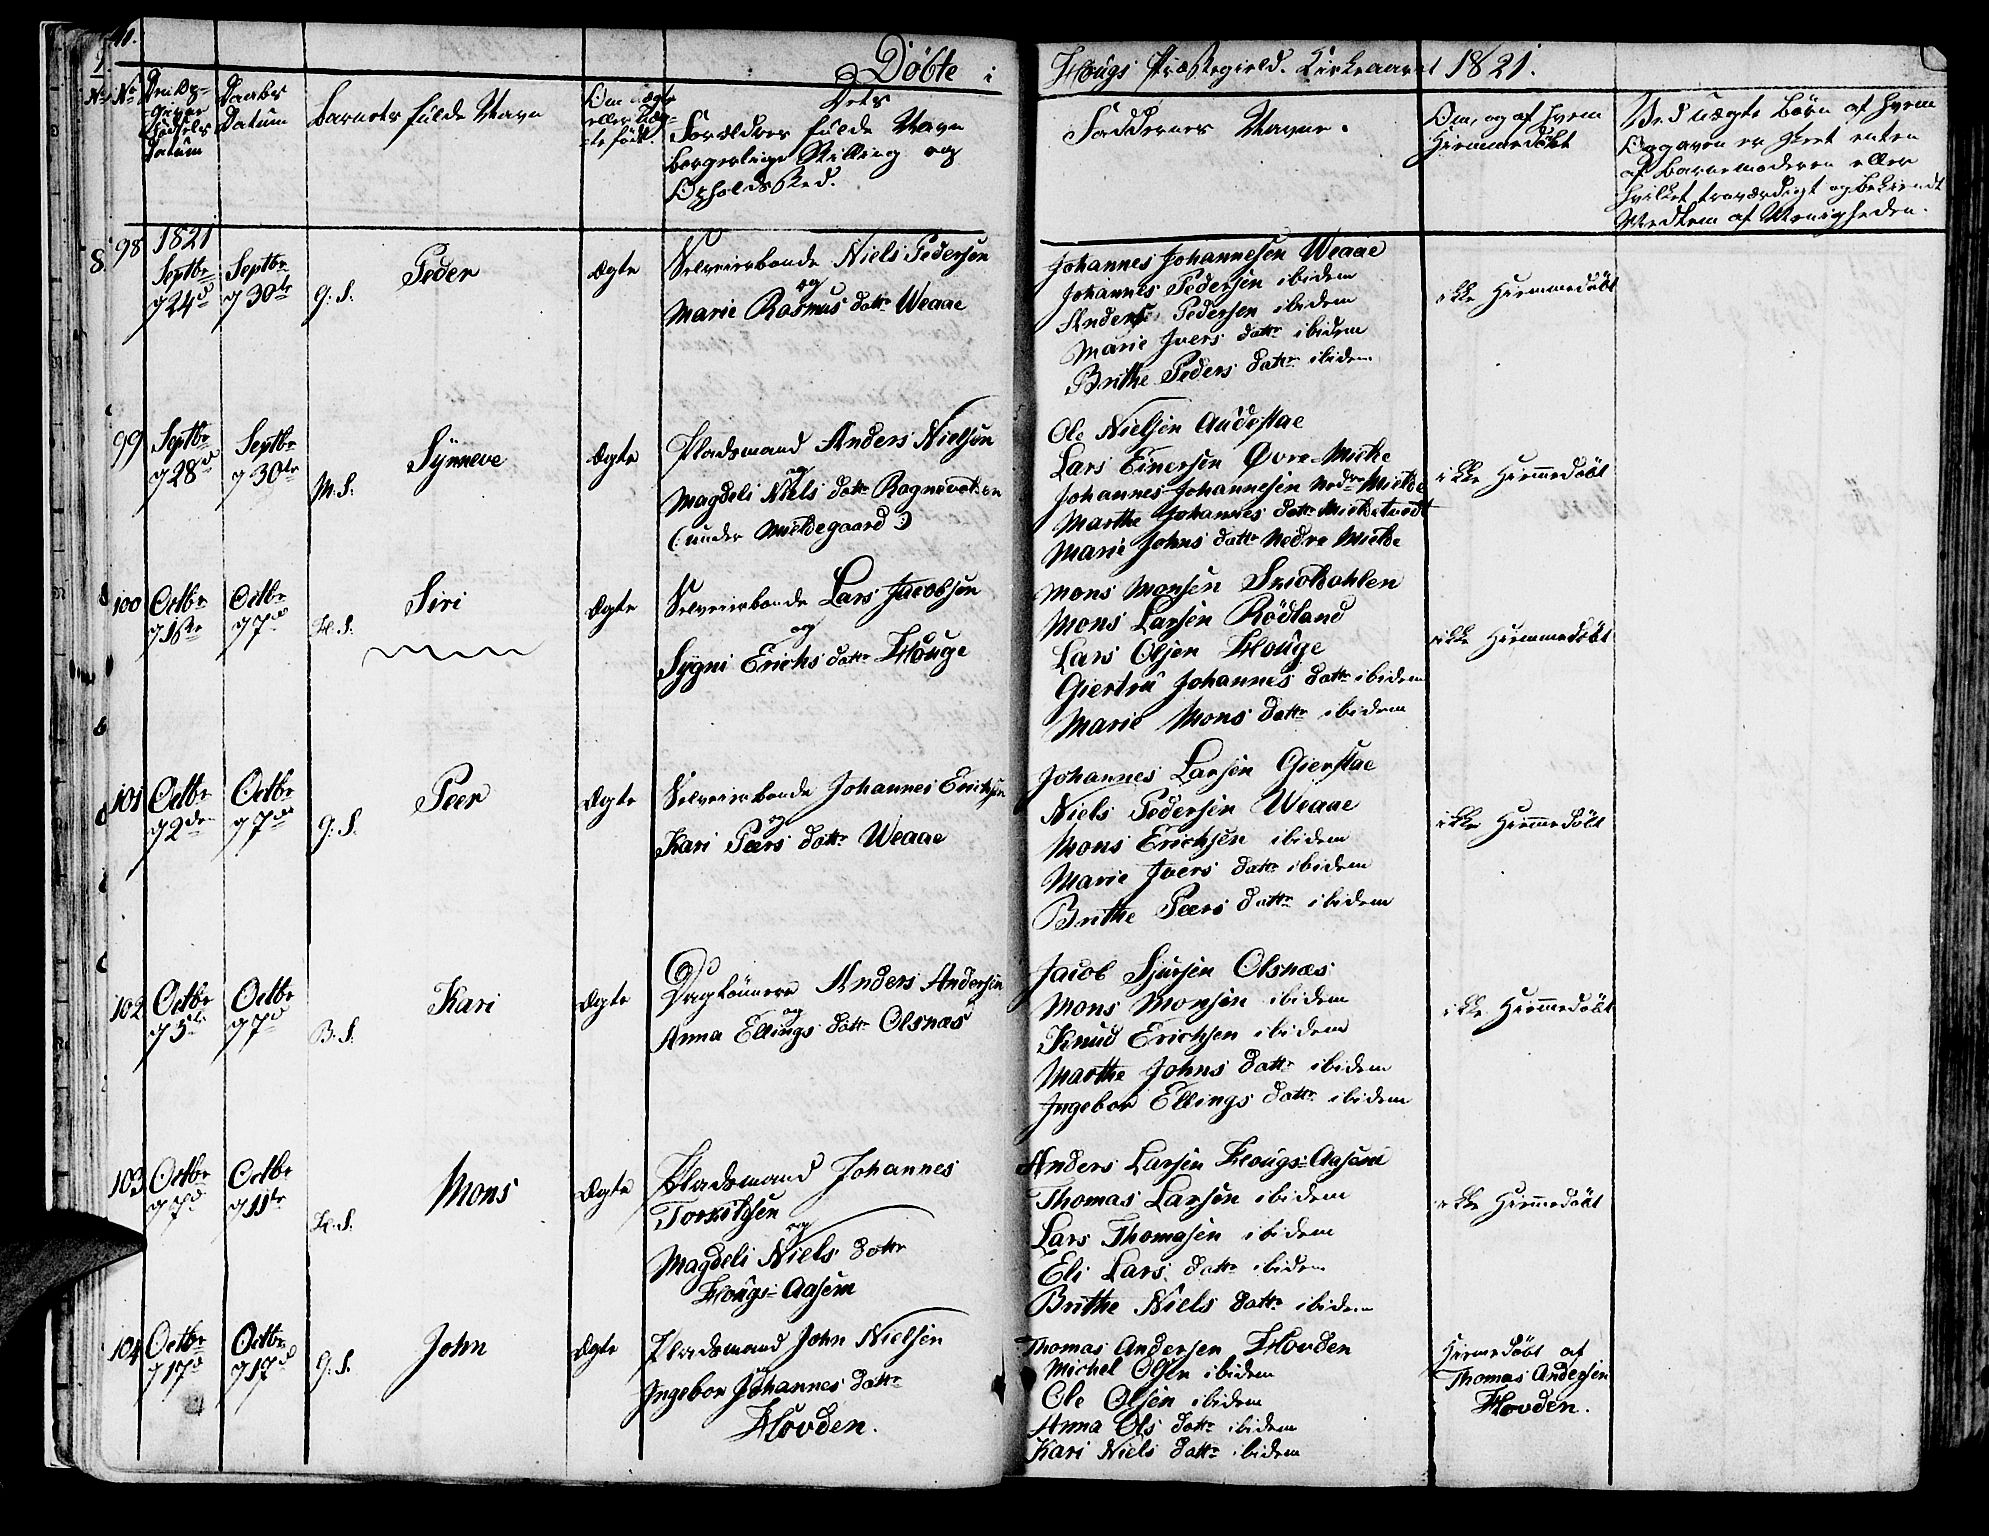 Döbte i Hougs Præstegield. Kirkeaaret 1821.
No
Den Op-
givne
Födsels
Datum
Daabs
Datum
Barnets fulde Navn
Om ægte
eller uæg-
te födt.
Dets
Forældres fulde Navn
borgerlige Stilling og
Opholdssted.
Faddernes Navne.
Om, og af hvem
Hiemmedöbt
Ved uægte Börn af hvem
Opgaven er skeet enten
af Barnemoderen eller
hvilket troværdigt og bekiendt
Medlem af Menigheden.
98 1821
Septbr
24d
Septbr
30te
G. S.
Peder
Ægte
Selveierbonde Niels Pedersen
og
Marie Rasmus dattr Weaae
Johannes Johannesen Weaae
Johannes Pedersen ibidem
Anders Pedersen ibidem
Marie Ivers dattr ibidem
Brithe Peders dattr ibidem
ikke Hiemmedöbt
99
Septbr
28d
Septbr
30te
M. S.
Synneve
Ægte
Pladsmand Anders Nielsen
og
Magdeli Niels dattr Ragnevoken
(: under Mieldegaard :)
Ole Nielsen Audestae
Lars Einersen Øvre-Mielde
Johannes Johannesen Nedre Mielde
Marthe Johannes dattr Mieldetvedt
Marie Johns dattr Nedre Mielde
ikke Hiemedöbt
100
Octbr
1ste
Octbr
7d
H. S.
Siri
Ægte
Selveierbonde Lars Jacobsen
og
Sygni Erichs dattr Houge
Mons Monsen Sniokahlen
Mons Larsen Rödland
Lars Olsen Houge
Giertru Johannes dattr ibidem
Marie Mons dattr ibidem
ikke Hiemmedöbt
101
Octbr
2den
Octbr
7de
G. S.
Peer
Ægte
Selveierbonde Johannes Erichsen
og
Kari Peers dattr Weaae
Johannes Larsen Gierstae
Niels Pedersen Weaae
Mons Erichsen ibidem
Marie Ivers dattr ibidem
Brithe Peers dattr ibidem
ikke Hiemedöbt
102
Octbr
5te
Octbr
7d
B. S.
Kari
Ægte
Daglönnere Anders Andersen
og
Anna Ellings dattr Olsnæs
Jacob Sjursen Olsnæs
Mons Monsen ibidem
Knud Erichsen ibidem
Marthe Johns dattr ibidem
Ingebor Ellings dattr ibidem
ikke Hiemedöbt
103
Octbr
7d
Octbr
11te
H. S.
Mons
Ægte
Pladsmand Johannes
Torkilsen
og
Magdeli Niels dattr
Hougs-Aasen
Anders Larsen Hougs-Aasene
Thomas Larsen ibidem
Lars Thomasen ibidem
Eli Lars dattr ibidem
Brithe Niels dattr ibidem
ikke Hiemedöbt
104
Octbr
17d
Octbr
17d
G. S.
John
Ægte
Pladsmand John Nielsen
og
Ingebor Johannes dattr
Hovden.
Thomas Andersen Hovden
Michel Olsen ibidem
Ole Olsen ibidem
Anna Ols dattr ibidem
Kari Niels dattr ibidem
Hiemedöbt af
Thomas Andersen
Hovden.